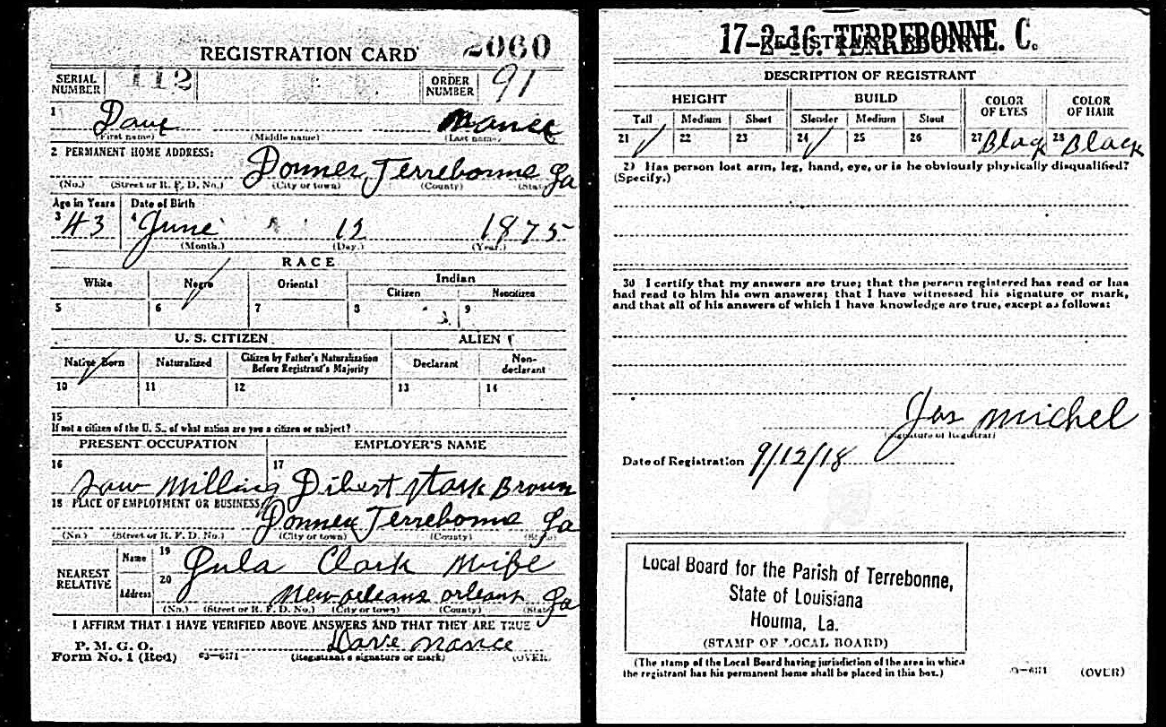 REGISTRATION CARD 2060
SERIAL NUMBER 112 ORDER NUMBER 91
1 Dave Nance
(First name) (Middle name) (Last name)
2 PERMANENT HOME ADDRESS:
Donner Terrebonne La
(No.) (Street or R. F. D. No.) (City or town) (County) (State)
Age in Years Date of Birth
3 43 4 June 12 1875
(Month.) (Day.) (Year.)
RACE
White Negro Oriental Indian
Citizen Noncitizen
5 6 7 8 9
U. S. CITIZEN ALIEN
Native Born Naturalized Citizen by Father's Naturalization Before Registrant's Majority Declarant Non-declarant
10 11 12 13 14
15
If not a citizen of the U. S., of what nation are you a citizen or subject?
PRESENT OCCUPATION EMPLOYER'S NAME
16 Saw Milling 17 Dibert Stark Brown
18 PLACE OF EMPLOYMENT OR BUSINESS:
Donner Terrebonne La
(No.) (Street or R. F. D. No.) (City or town) (County) (State)
NEAREST RELATIVE Name 19 Clark Wife
Address 20 New Orleans Orleans La
(No.) (Street or R. F. D. No.) (City or town) (County) (State)
I AFFIRM THAT I HAVE VERIFIED ABOVE ANSWERS AND THAT THEY ARE TRUE
P. M. G. O.
Form No. 1 (Red) 03-6171 Dave Nance
(Registrant's signature or mark) (OVER)
17-2-16. TERREBONNE. C.
DESCRIPTION OF REGISTRANT
HEIGHT BUILD COLOR OF EYES COLOR OF HAIR
Tall Medium Short Slender Medium Stout
21 22 23 24 25 26 27 Black 28 Black
29 Has person lost arm, leg, hand, eye, or is he obviously physically disqualified?
(Specify.)
30 I certify that my answers are true; that the person registered has read or has
had read to him his own answers; that I have witnessed his signature or mark,
and that all of his answers of which I have knowledge are true, except as follows:
Jas Michel
(Signature of Registrar)
Date of Registration 9/12/18
Local Board for the Parish of Terrebonne,
State of Louisiana
Houma, La.
(STAMP OF LOCAL BOARD)
(The stamp of the Local Board having jurisdiction of the area in which
the registrant has his permanent home shall be placed in this box.)
03-6171 (OVER)